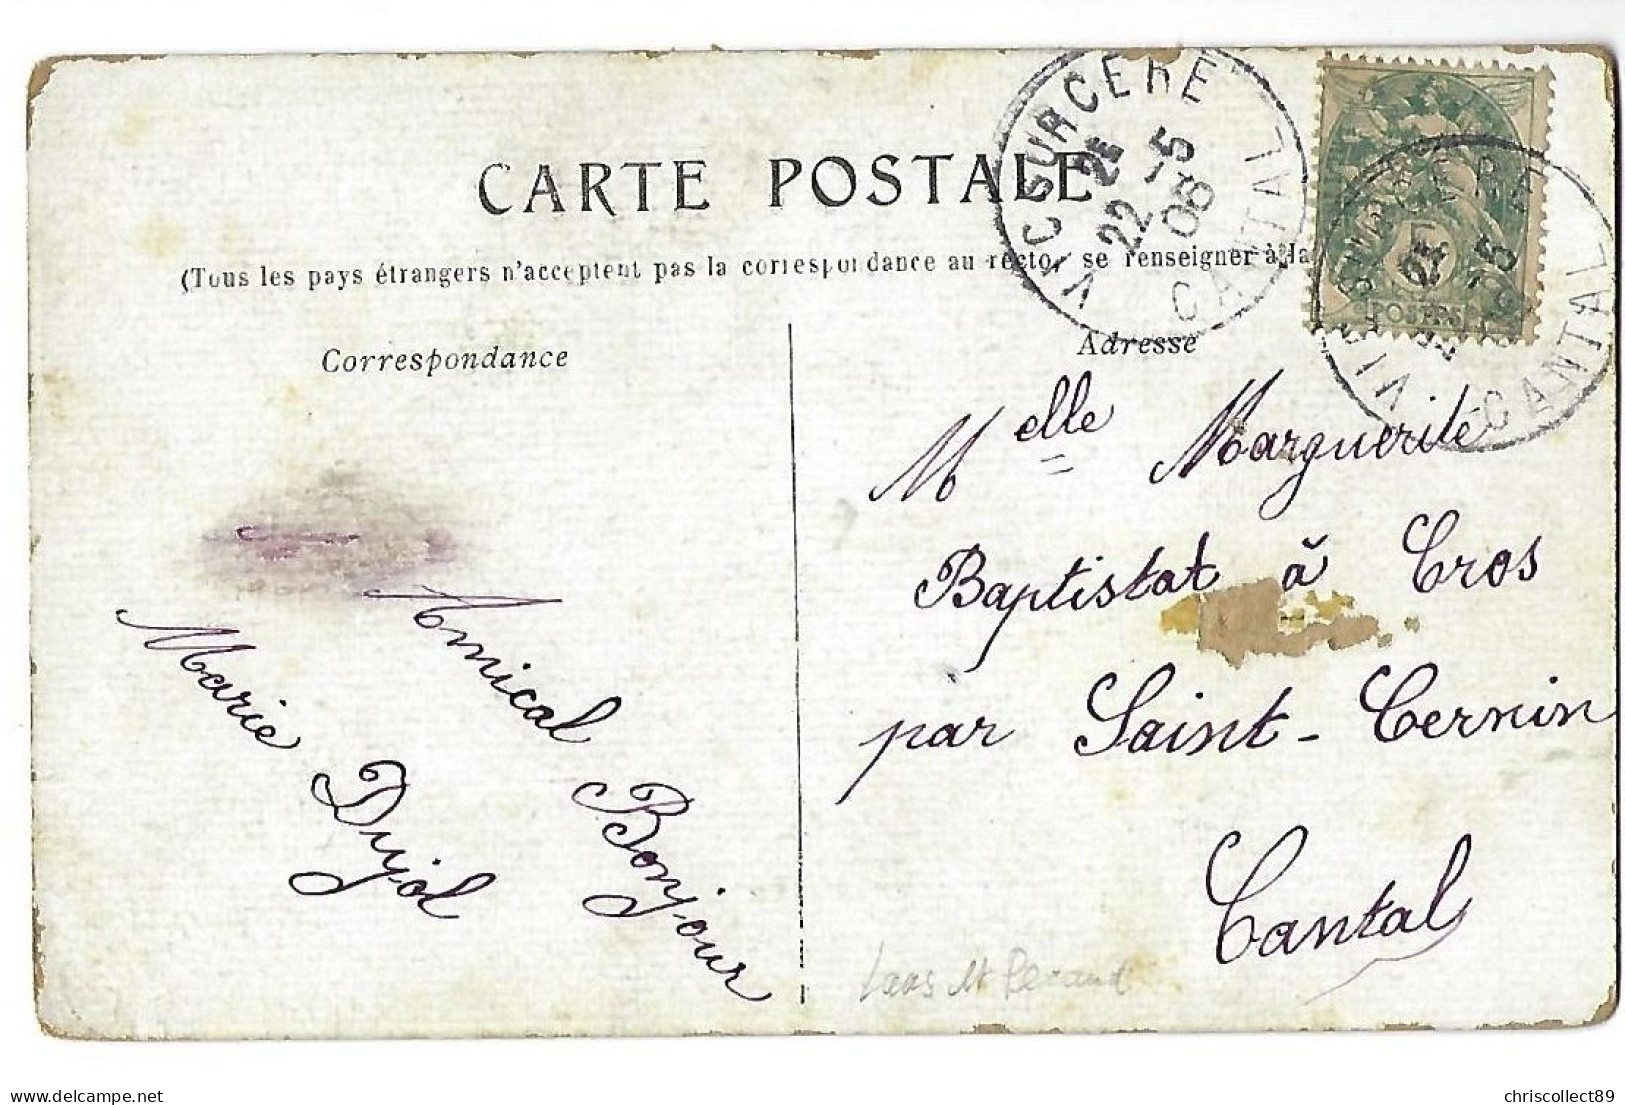 CARTE POSTALE
(Tous les pays étrangers n'acceptent pas la correspondance au recto, se renseigner à la
Correspondance
Adresse
VIC SUR CERE
2E
22 -5
06
CANTAL
SUR CERE
2E
CANTAL
5
POSTES
Melle Marguerite
Baptistat à Cros
par Saint-Cernin
Cantal
Amical Bonjour
Marie Dujol
delcampe.net
chriscollect89